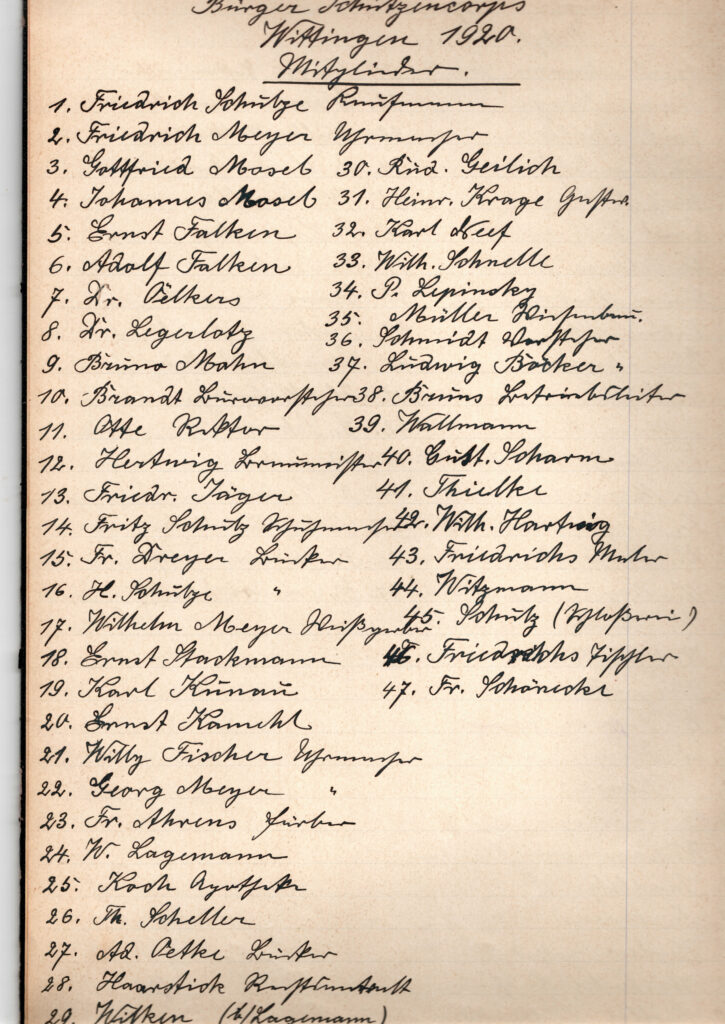 Bürger Schützencorps
Wittingen 1920.
Mitglieder.
1. Friedrich Schulze Kaufmann
2. Friedrich Meyer Uhrmacher
3. Gottfried Mosel
4. Johannes Mosel
5. Ernst Falken
6. Adolf Falken
7. Dr. Oelkers
8. Dr. Legerlotz
9. Bruno Mahn
10. Brandt
11. Otte Rektor
12. Hertwig Braumeister
13. Friedr. Jäger
14. Fritz Schulz Schuhmacher
15. Fr. Dreyer Bäcker
16. H. Schulze "
17. Wilhelm Meyer Weißgerber
18. Ernst Stackmann
19. Karl Künau
20. Ernst Kamehl
21. Willy Fischer Uhrmacher
22. Georg Meyer "
23. Fr. Ahrens Färber
24. W. Lagemann
25. Koch Apotheke
26. Th. Scheller
27. Ad. Oetke Bäcker
28. Haarstick Rechtsanwalt
29. Wilken (b/Lagemann)
30. Rud. Geilich
31. Heinr. Krage Gastw.
32. Karl Neef
33. Wilh. Schnelle
34. P. Lepinsky
35. Müller Wiesenbau.
36. Schmidt Vorsteher
37. Ludwig Böcker "
38. Bruns Betriebsleiter
39. Wallmann
40. Gust. Scharm
41. Thielke
42. Wilh. Hartwig
43. Friedrichs Maler
44. Witzmann
45. Schulz (Schloßerei)
46. Friedrichs Tischler
47. Fr. Schönecke